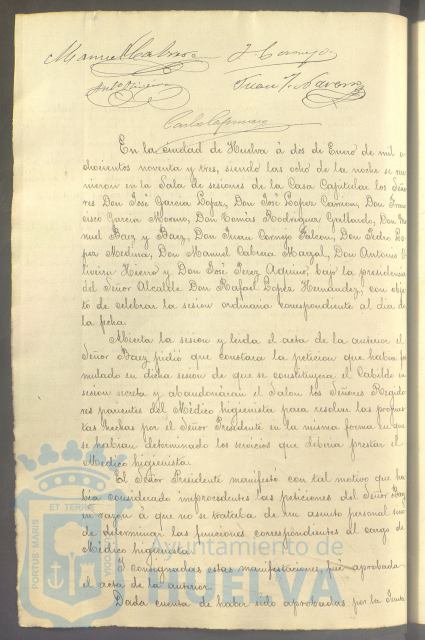 Manuel Cabrera J. Cornejo
Juan J. Navarro
En la ciudad de Huelva á dos de Enero de mil o
chocientos noventa y tres, siendo las ocho de la noche se reu
nieron en la Sala de sesiones de la Casa Capitular los Seño
res Don José García López, Don José López Carrion, Don Fran
cisco García Morno, Don Tomás Rodriguez Gallardo, Don Ma
nuel Baez y Baez, Don Juan Cornejo Falcon, Don Pedro Lo
pez Medina, Don Manuel Cabrera Marzal, Don Antonio O
liveira Hierro y Don José Perez Aquino, bajo la presidencia
del Señor Alcalde Don Rafael Lopez Hernandez, con obje
to de celebrar la sesion ordinaria correspondiente al dia de
la fecha.
Abierta la sesion y leida el acta de la anterior el
Señor Baez pidió que constara la peticion que habia for
mulado en dicha sesion de que se constituyera el Cabildo en
sesion secreta y abandonáran el Salon los Señores Regido
res parientes del Médico higienista para resolver las propues
tas hechas por el Señor Presidente en la misma forma en que
se habian determinado los servicios que deberia prestar el
Médico higienista.
El Señor Presidente manifestó con tal motivo que ha
bia considerado improcedentes las peticiones del Señor Baez
en razon á que no se trataba de un asunto personal sino
de determinar las funciones correspondientes al cargo de
Médico higienista.
Y consignadas estas manifestaciones fué aprobada
el acta de la anterior.
Dada cuenta de haber sido aprobadas por la Junta
ET TERRAE
PORTUS MARIS
CUSTODIA
Ayuntamiento de
HUELVA